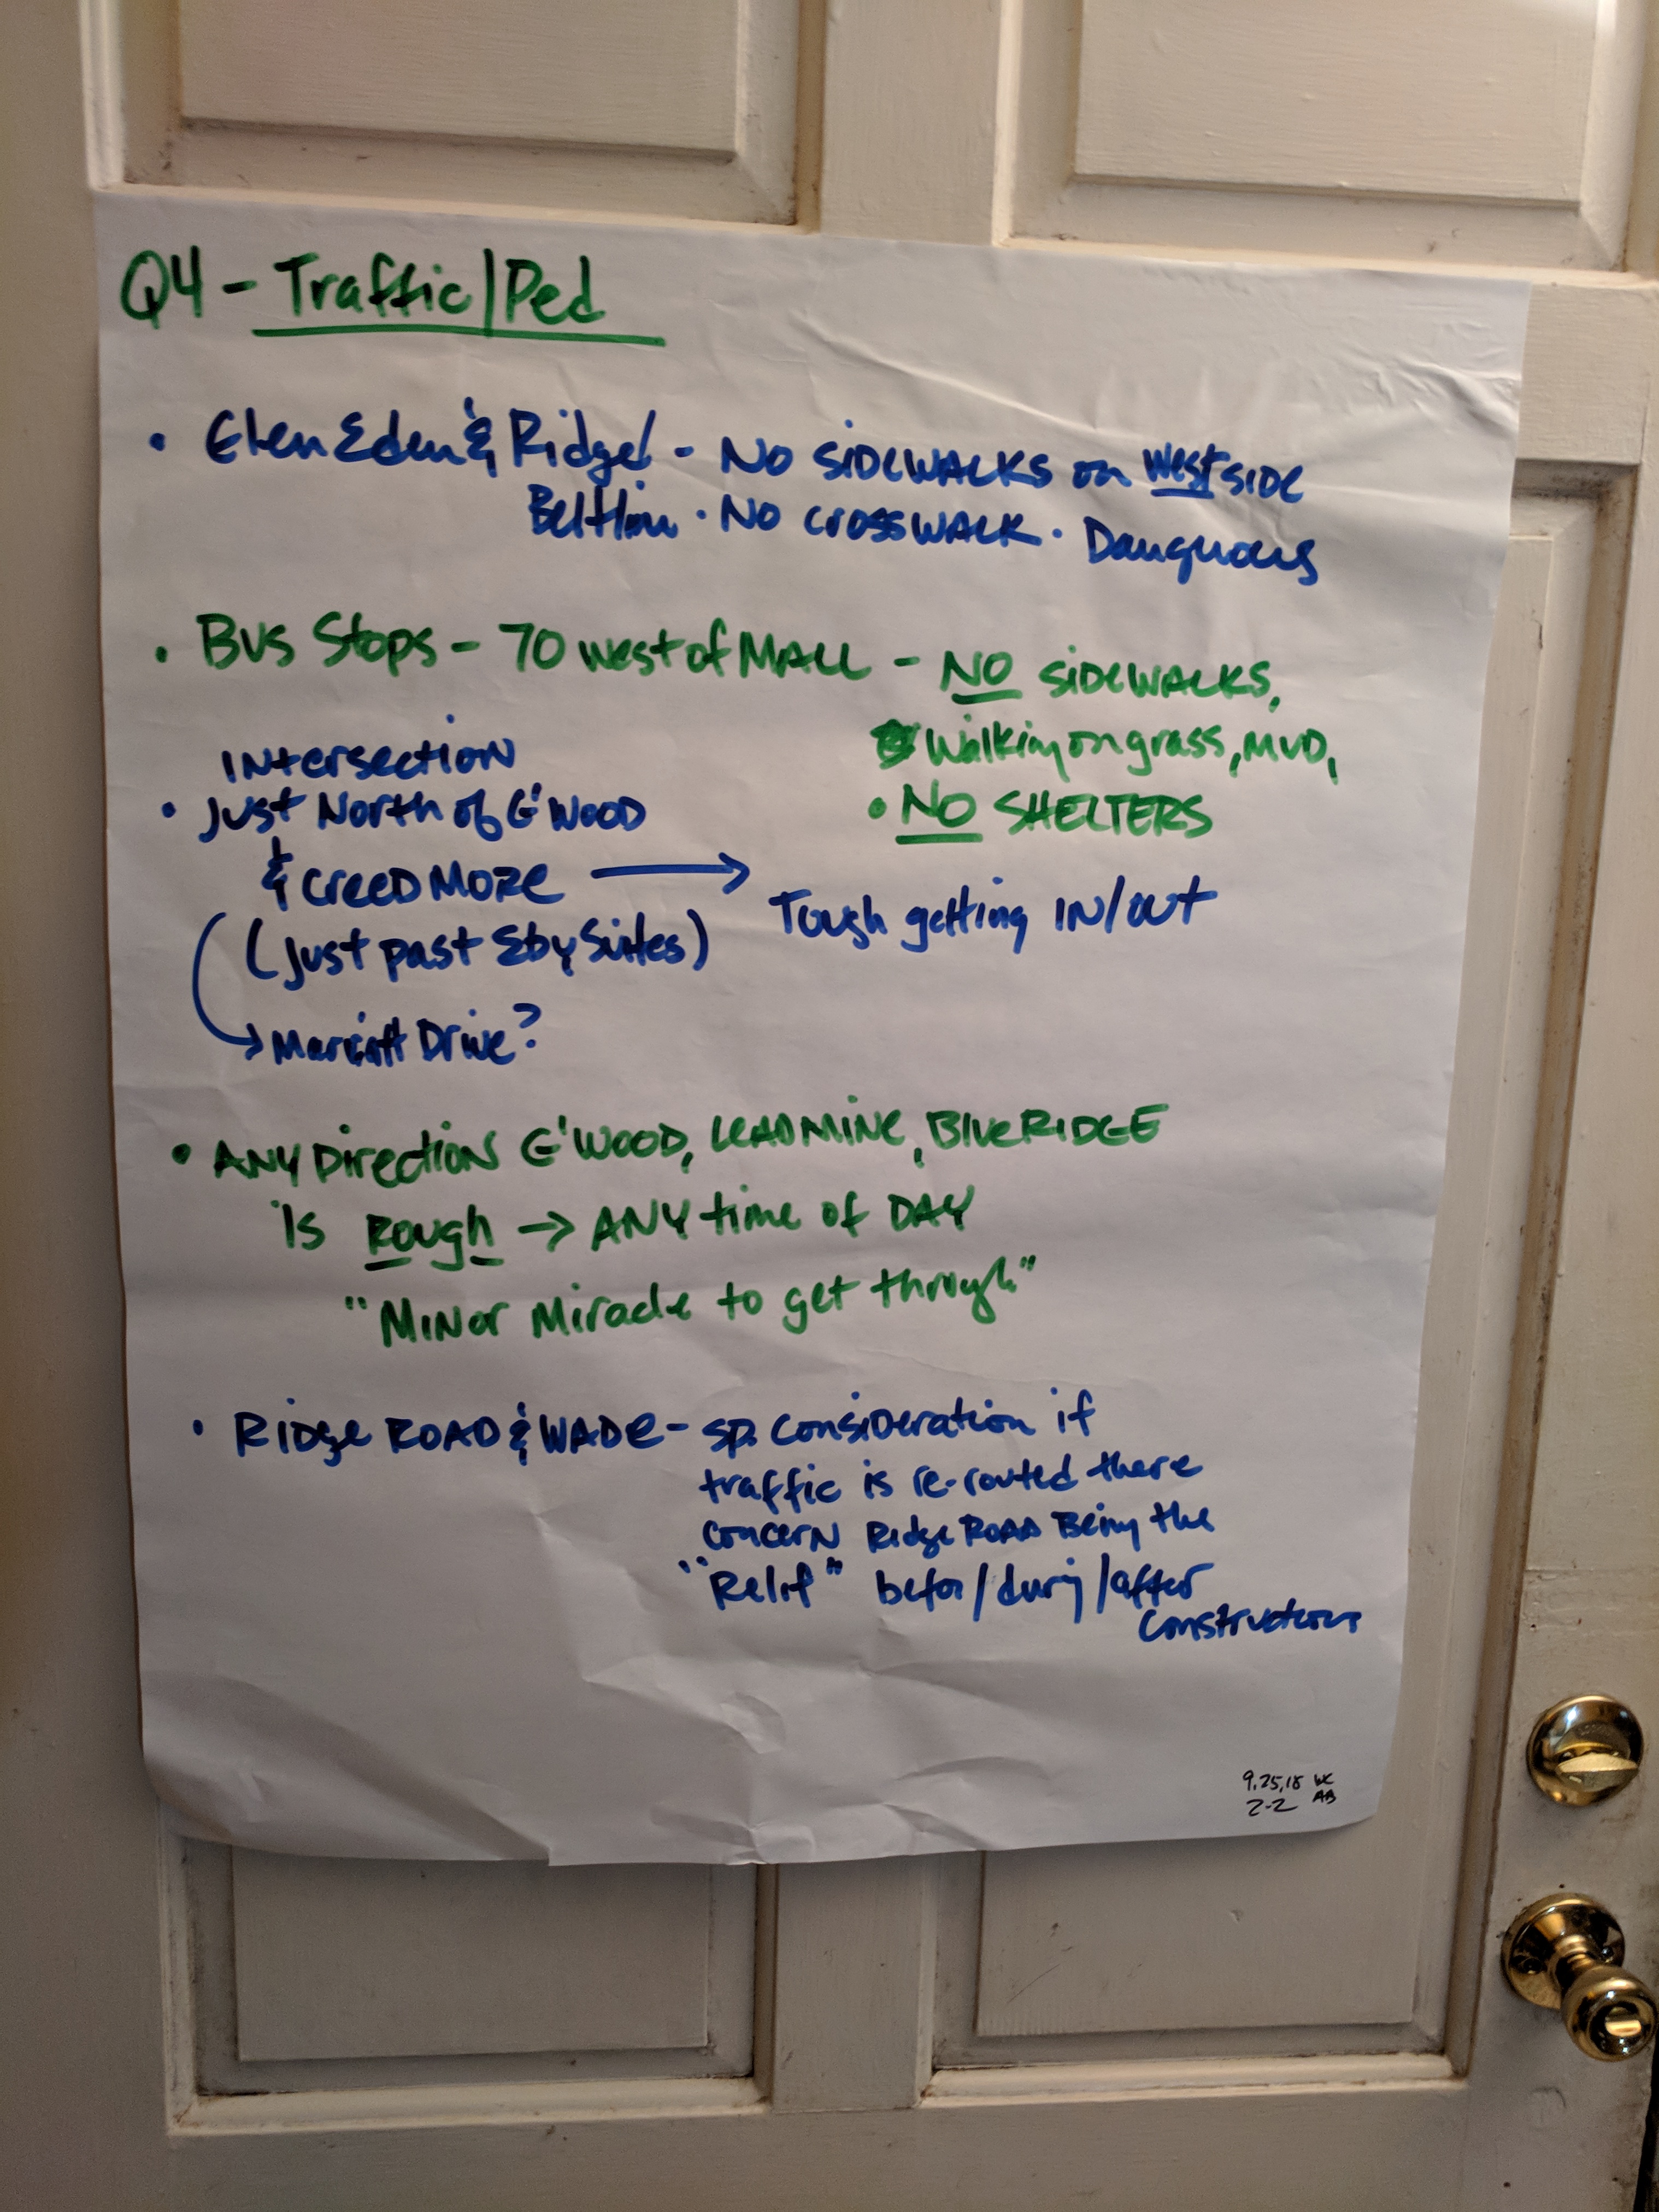 Q4 - Traffic/Ped
• Glen Eden & Ridge/ - No SIDEWALKS on West side
Beltline · No crosswalk · Dangerous
• Bus Stops - 70 west of MALL - NO SIDEWALKS,
Walking on grass, MUD,
• NO SHELTERS
Intersection
• Just North of G'Wood
& Creedmore → Tough getting IN/out
(Just past Eby Suites)
→ Marriott Drive?
• ANY Direction G'Wood, LEADMINE, Blue RIDGE
Is Rough → ANY time of DAY
"Minor Miracle to get through"
• Ridge ROAD & WADE - sp. consideration if
traffic is re-routed there
concern Ridge Road Being the
"Relief" before/during/after
construction
9.25.18 WC
2-2 AB